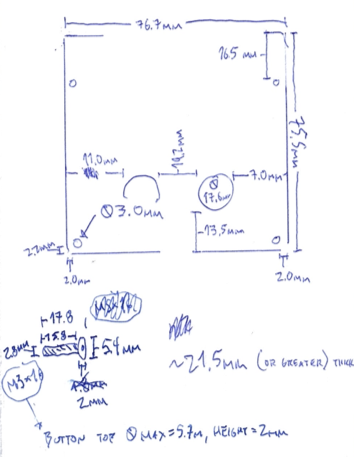 76.7mm
16.5mm
75.5mm
11.0mm
14.2mm
Ø
17.6mm
7.0mm
Ø3.0mm
13.5mm
2.2mm
2.0mm
2.0mm
17.8
15.8
2.8mm
5.4mm
M3x16
2mm
~21.5mm (OR GREATER) THICK
BUTTON TOP Ø MAX=5.7M, HEIGHT=2mm